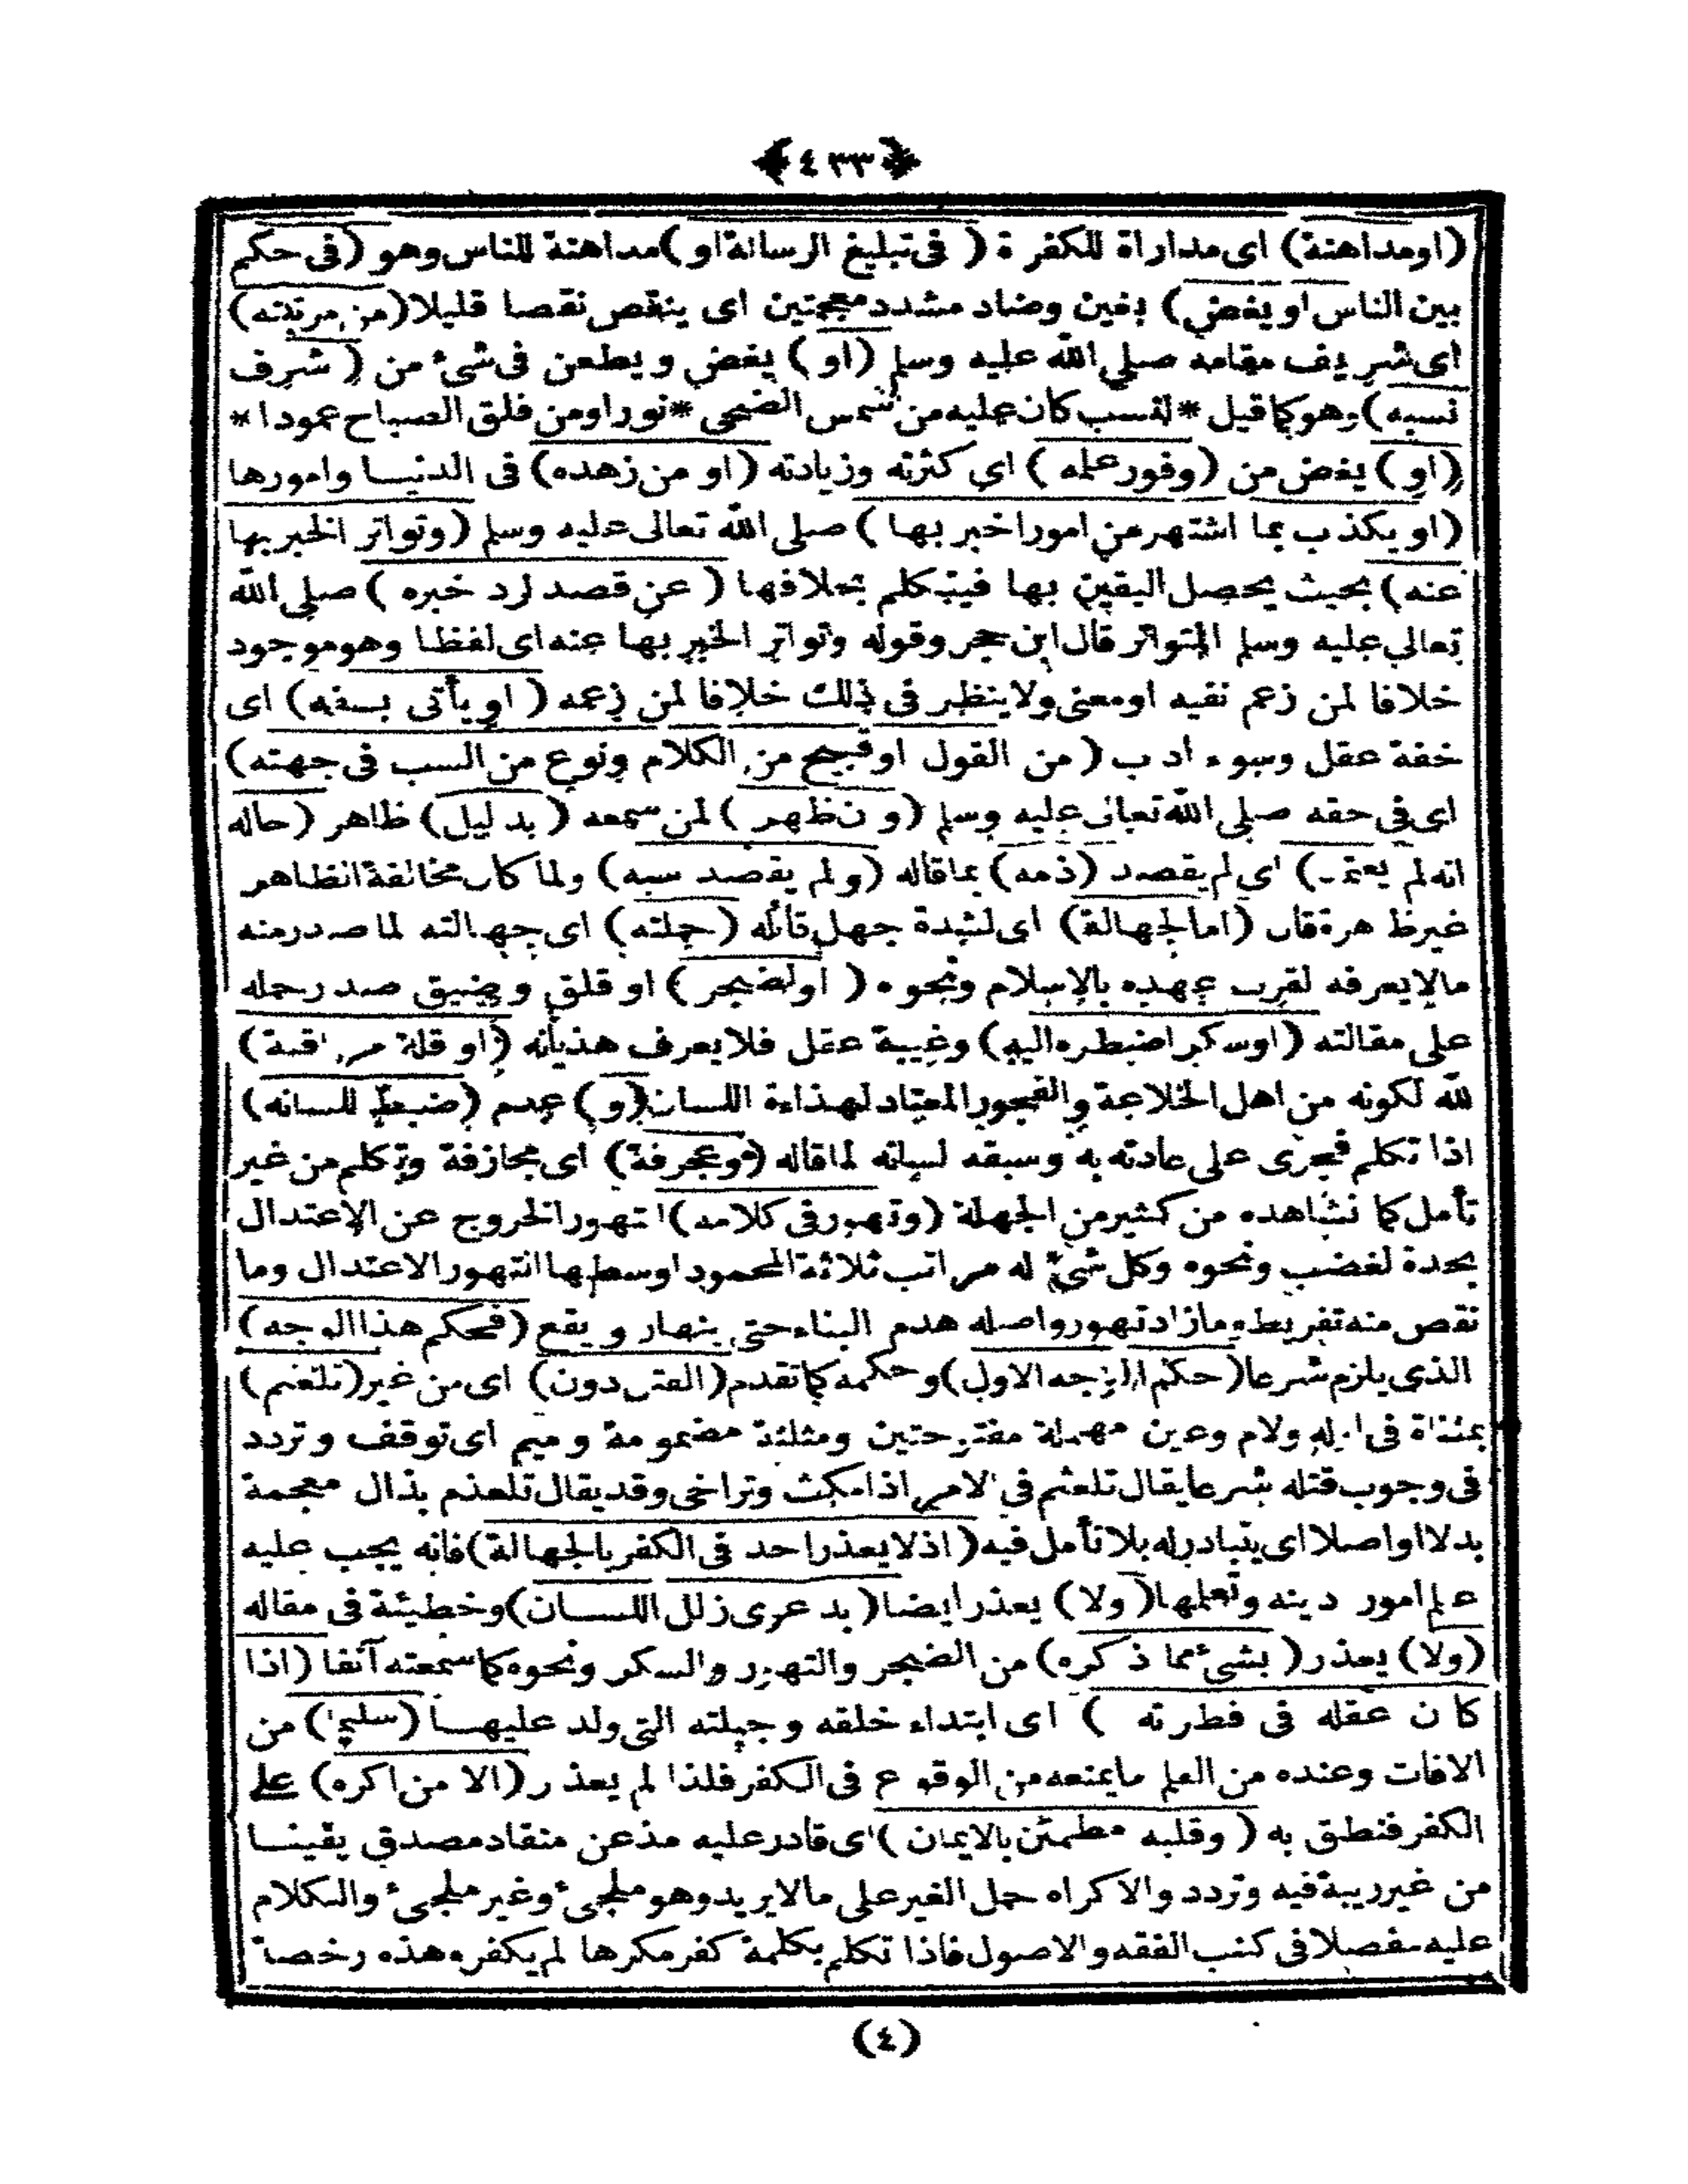 ﴿٤٣٣﴾
(او مداهنة) اى مداراة للكفرة (فى تبليغ الرسالة او) مداهنة للناس وهو (فى حكم
بين الناس او يغض) بغين وضاد مشدد معجمتين اى ينقص نقصا قليلا (من مرتبته)
اى شريف مقامه صلى الله عليه وسلم (او) يغض ويطعن فى شئ من (شرف
نسبه) وهو كما قيل * نسب كان عليه من شمس الضحى * نورا ومن فلق الصباح عمودا *
(او) يغض من (وفور علمه) اى كثرته وزيادته (او من زهده) فى الدنيا وامورها
(او يكذب بما اشتهر من امور اخبر بها) صلى الله تعالى عليه وسلم (وتواتر الخبر بها
عنه) بحيث يحصل اليقين بها فيتكلم بخلافها (عن قصد لرد خبره) صلى الله
تعالى عليه وسلم المتواتر قال ابن حجر وقوله وتواتر الخبر بها عنه اى لفظا وهو موجود
خلافا لمن زعم نفيه او معنى ولا ينظر فى ذلك خلافا لمن زعمه (او يأتى بسفه) اى
خفة عقل وسوء أدب (من القول او قبيح من الكلام ونوع من السب فى جهته)
اى فى حقه صلى الله تعالى عليه وسلم (و ن ظهر) لمن سمعه (بدليل) ظاهر (حاله
انه لم يعتمد) اى لم يقصد (ذمه) بما قاله (ولم يقصد سبه) ولما كان مخالفة الظاهر
غير ظ هرة قال (اما لجهالة) اى لشدة جهل قائله (حملته) اى جهالته لما صدر منه
مالا يعرفه لقرب عهده بالاسلام ونحوه (او لضجر) او قلق وضيق صدر حمله
على مقالته (او سكر اضطره اليه) وغيبة عقل فلا يعرف هذيانه (او قلة مراقبة)
لله لكونه من اهل الخلاعة والفجور المعتاد لهذاءة اللسان (و) عدم (ضبط للسانه)
اذا تكلم فجرى على عادته به وسبقه لسانه لما قاله (وعجرفة) اى مجازفة وتكلم من غير
تأمل كما نشاهده من كثير من الجهلة (وتهور فى كلامه) التهور الخروج عن الاعتدال
بحدة لغضب ونحوه وكل شئ له مراتب ثلاثة المحمود اوسطها التهور الاعتدال وما
نقص منه تفريط وما زاد تهور واصله هدم البناء حتى ينهار ويقع (فحكم هذا الوجه)
الذى يلزم شرعا (حكم الوجه الاول) وحكمه كما تقدم (القتل دون) اى من غير (تلعثم)
بمثناة فى اوله ولام وعين مهملة مفتوحتين ومثلثة مضمومة وميم اى توقف وتردد
فى وجوب قتله شرعا يقال تلعثم فى الامر اذا مكث وتراخى وقد يقال تلعذم بذال معجمة
بدلا او اصلا اى يتبادر له بلا تأمل فيه (اذ لا يعذر احد فى الكفر بالجهالة) فانه يجب عليه
علم امور دينه وتعلمها (ولا) يعذر ايضا (بدعوى زلل اللسان) وخطيئة فى مقاله
(ولا) يعذر (بشئ مما ذكره) من الضجر والتهور والسكر ونحوه كما سمعته آنفا (اذا
كان عقله فى فطرته) اى ابتداء خلقه وجبلته التى ولد عليها (سليما) من
الافات وعنده من العلم ما يمنعه من الوقوع فى الكفر فلذا لم يعذر (الا من اكره) على
الكفر فنطق به (وقلبه مطمئن بالايمان) اى قادر عليه مذعن منقاد مصدق يقينا
من غير ريبة فيه وتردد والاكراه حمل الغير على مالا يريد وهو ملجئ وغير ملجئ والكلام
عليه مفصلا فى كتب الفقه والاصول فاذا تكلم بكلمة كفر مكرها لم يكفر وهذه رخصة
(٤)